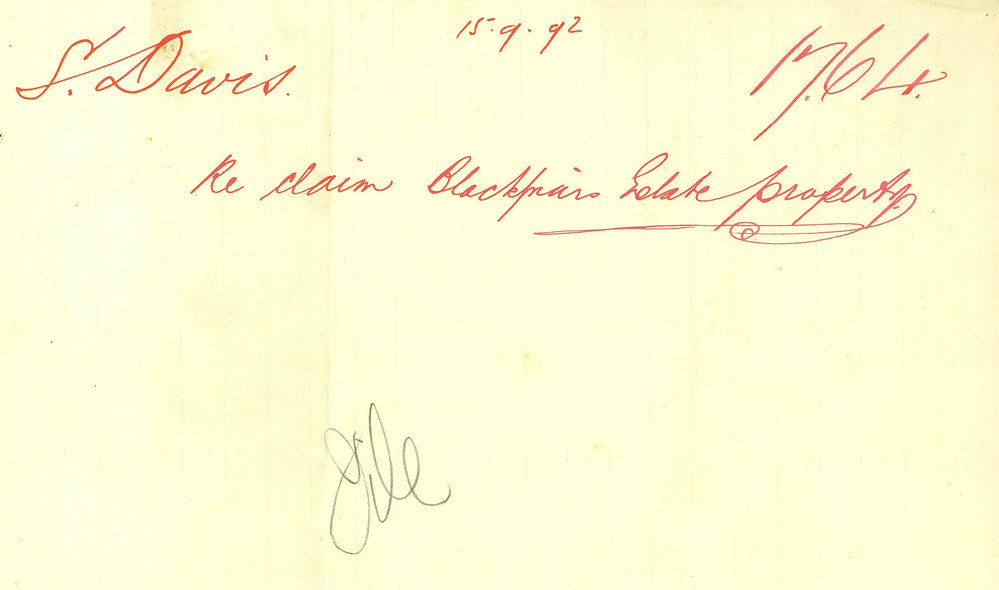 15-9-92
S. Davis.
1764.
Re claim Blackfriars Estate property.
File